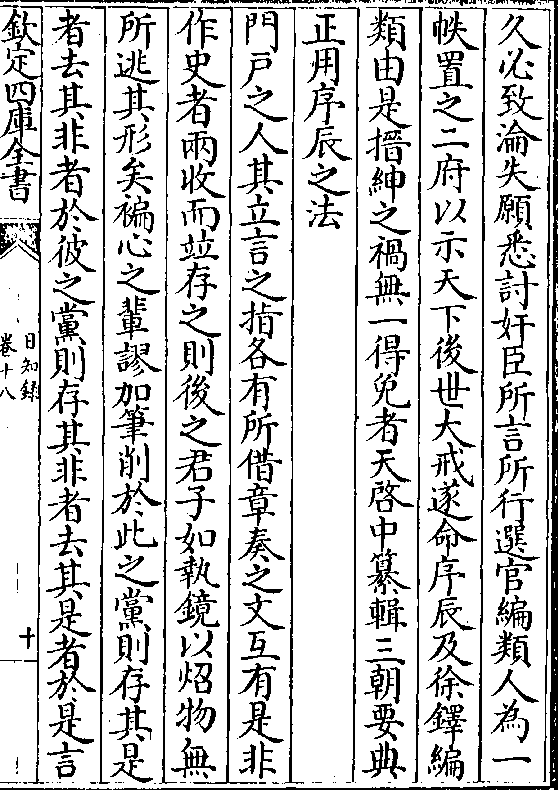 久必致淪失願悉討奸臣所言所行選官編類人為一
帙置之二府以示天下後世大戒遂命序辰及徐鐸編
類由是搢紳之禍無一得免者天啓中纂輯三朝要典
正用序辰之法
門戸之人其立言之指各有所借章奏之文互有是非
作史者兩收而竝存之則後之君子如執鏡以炤物無
所逃其形矣褊心之輩謬加筆削於此之黨則存其是
者去其非者於彼之黨則存其非者去其是者於是言
欽定四庫全書
日知錄
卷十八
十